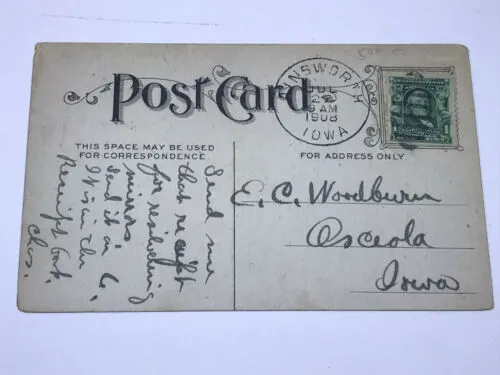 Post Card
AINSWORTH
JUL
22
9 AM
1908
IOWA
1
THIS SPACE MAY BE USED
FOR CORRESPONDENCE.
FOR ADDRESS ONLY.
Send me
that receipt
for resilvering
mirrors
send it in
It is in the
Receipt book
Chas.
E. C. Woodburn
Osceola
Iowa